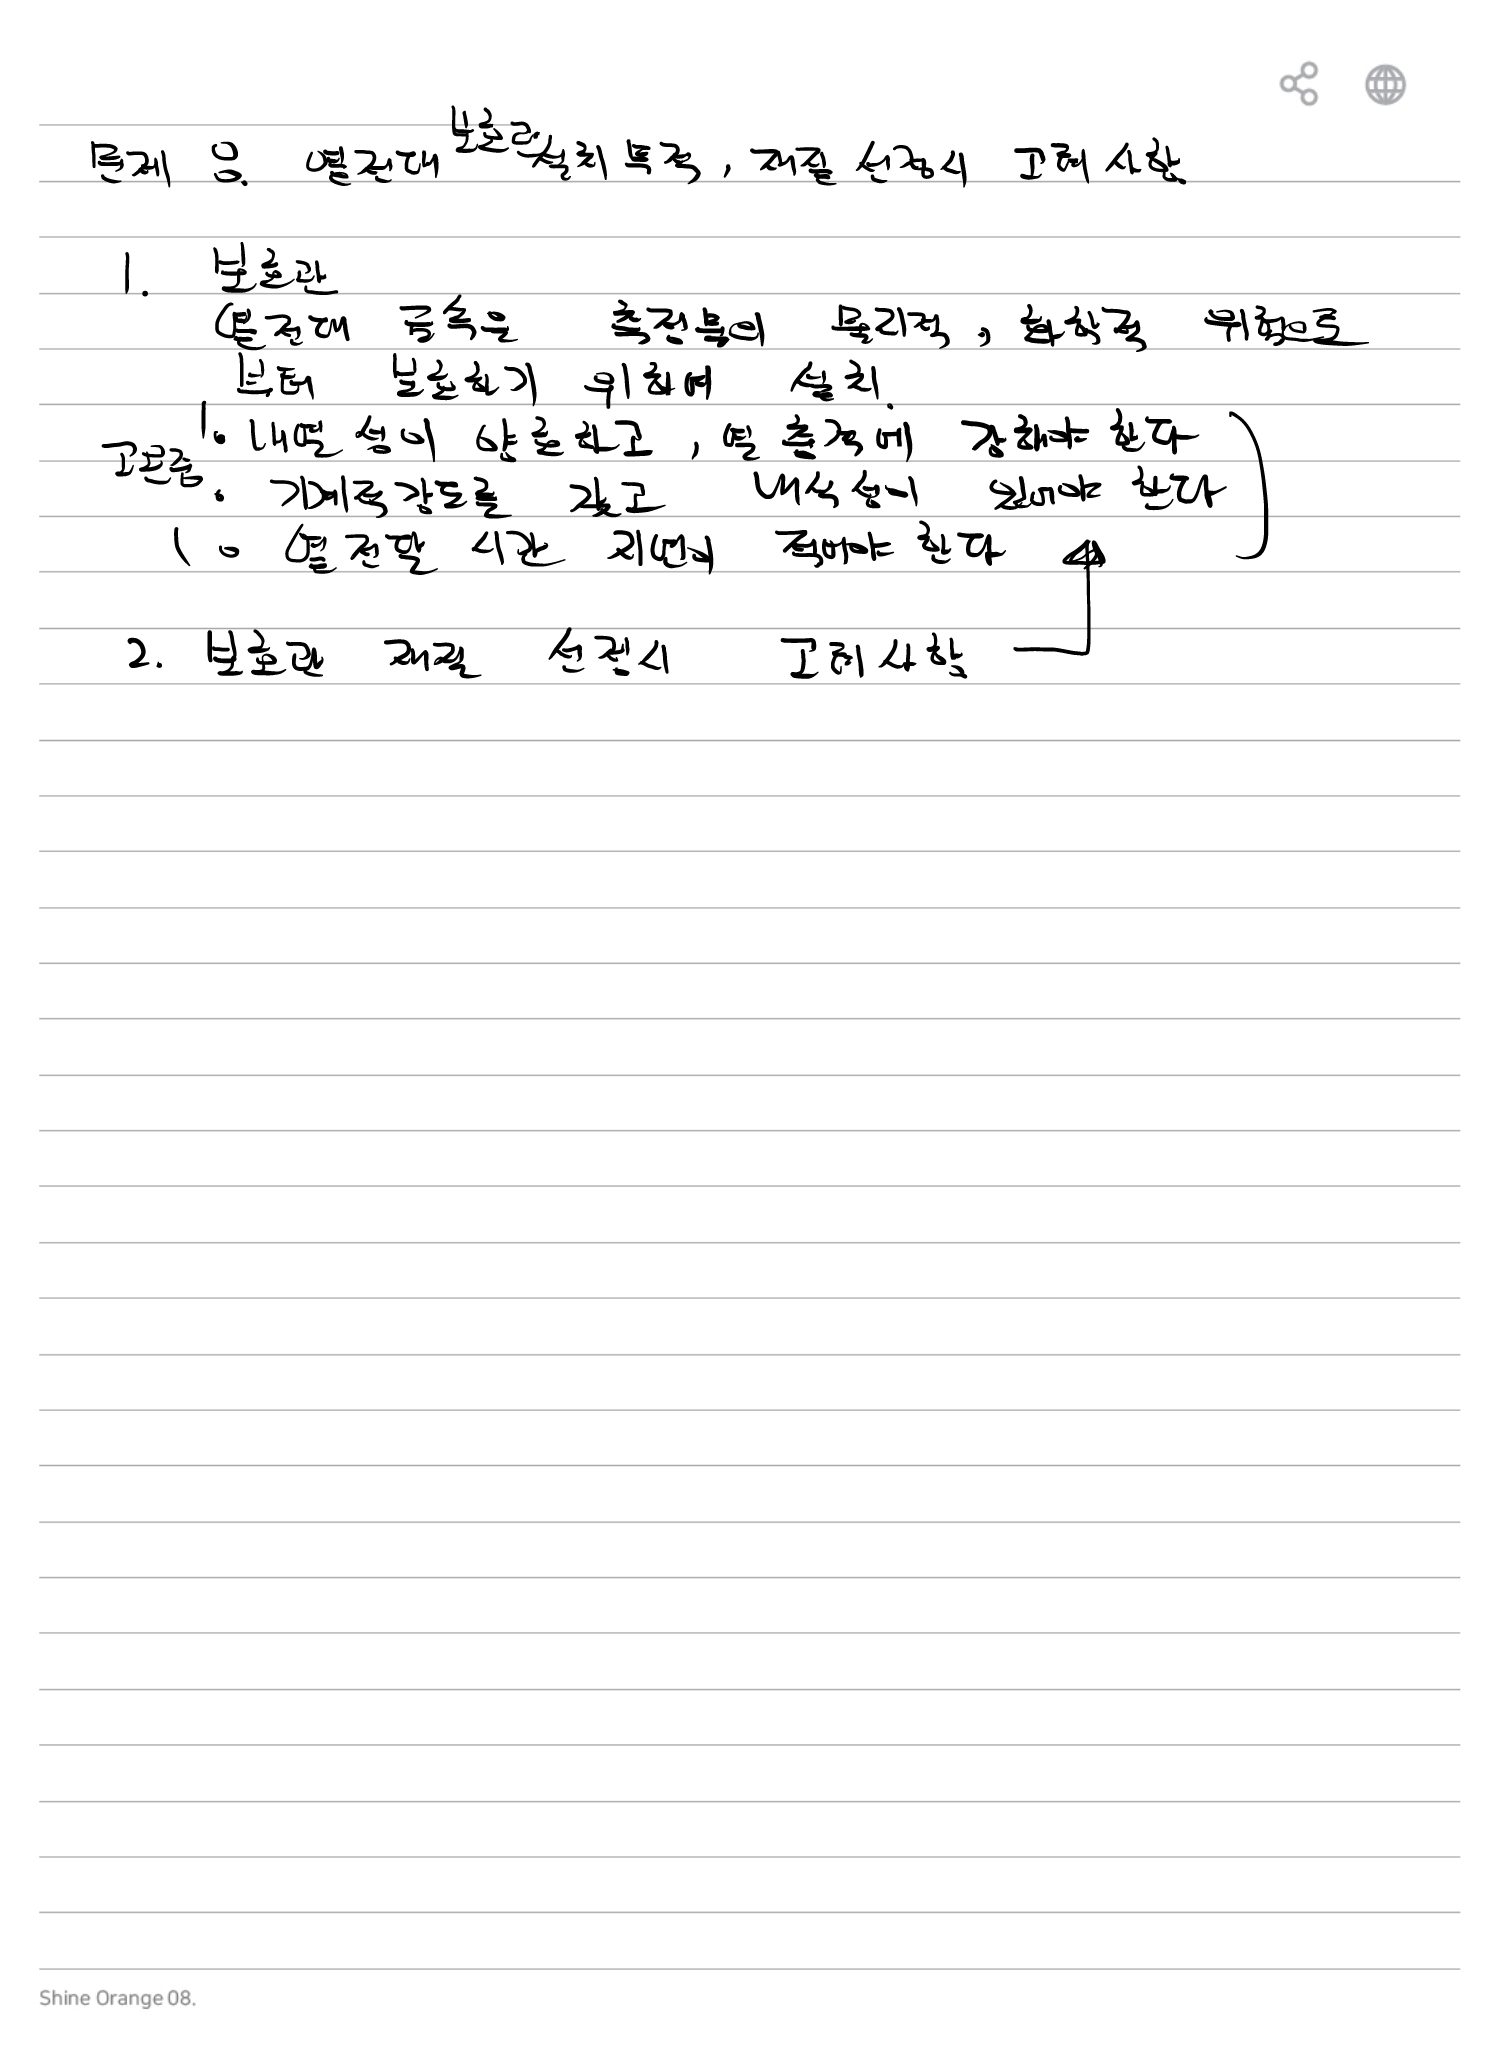 문제 응. 열전대 보호관 설치목적, 재질 선정시 고려사항
1. 보호관
열전대 금속은 측정부의 물리적, 화학적 위험으로
부터 보호하기 위하여 설치.
· 내열성이 양호하고, 열충격에 강해야 한다
· 기계적강도를 갖고 내식성이 있어야 한다
· 열전달 시간 지연이 적어야 한다
2. 보호관 재질 선정시 고려사항
Shine Orange 08.